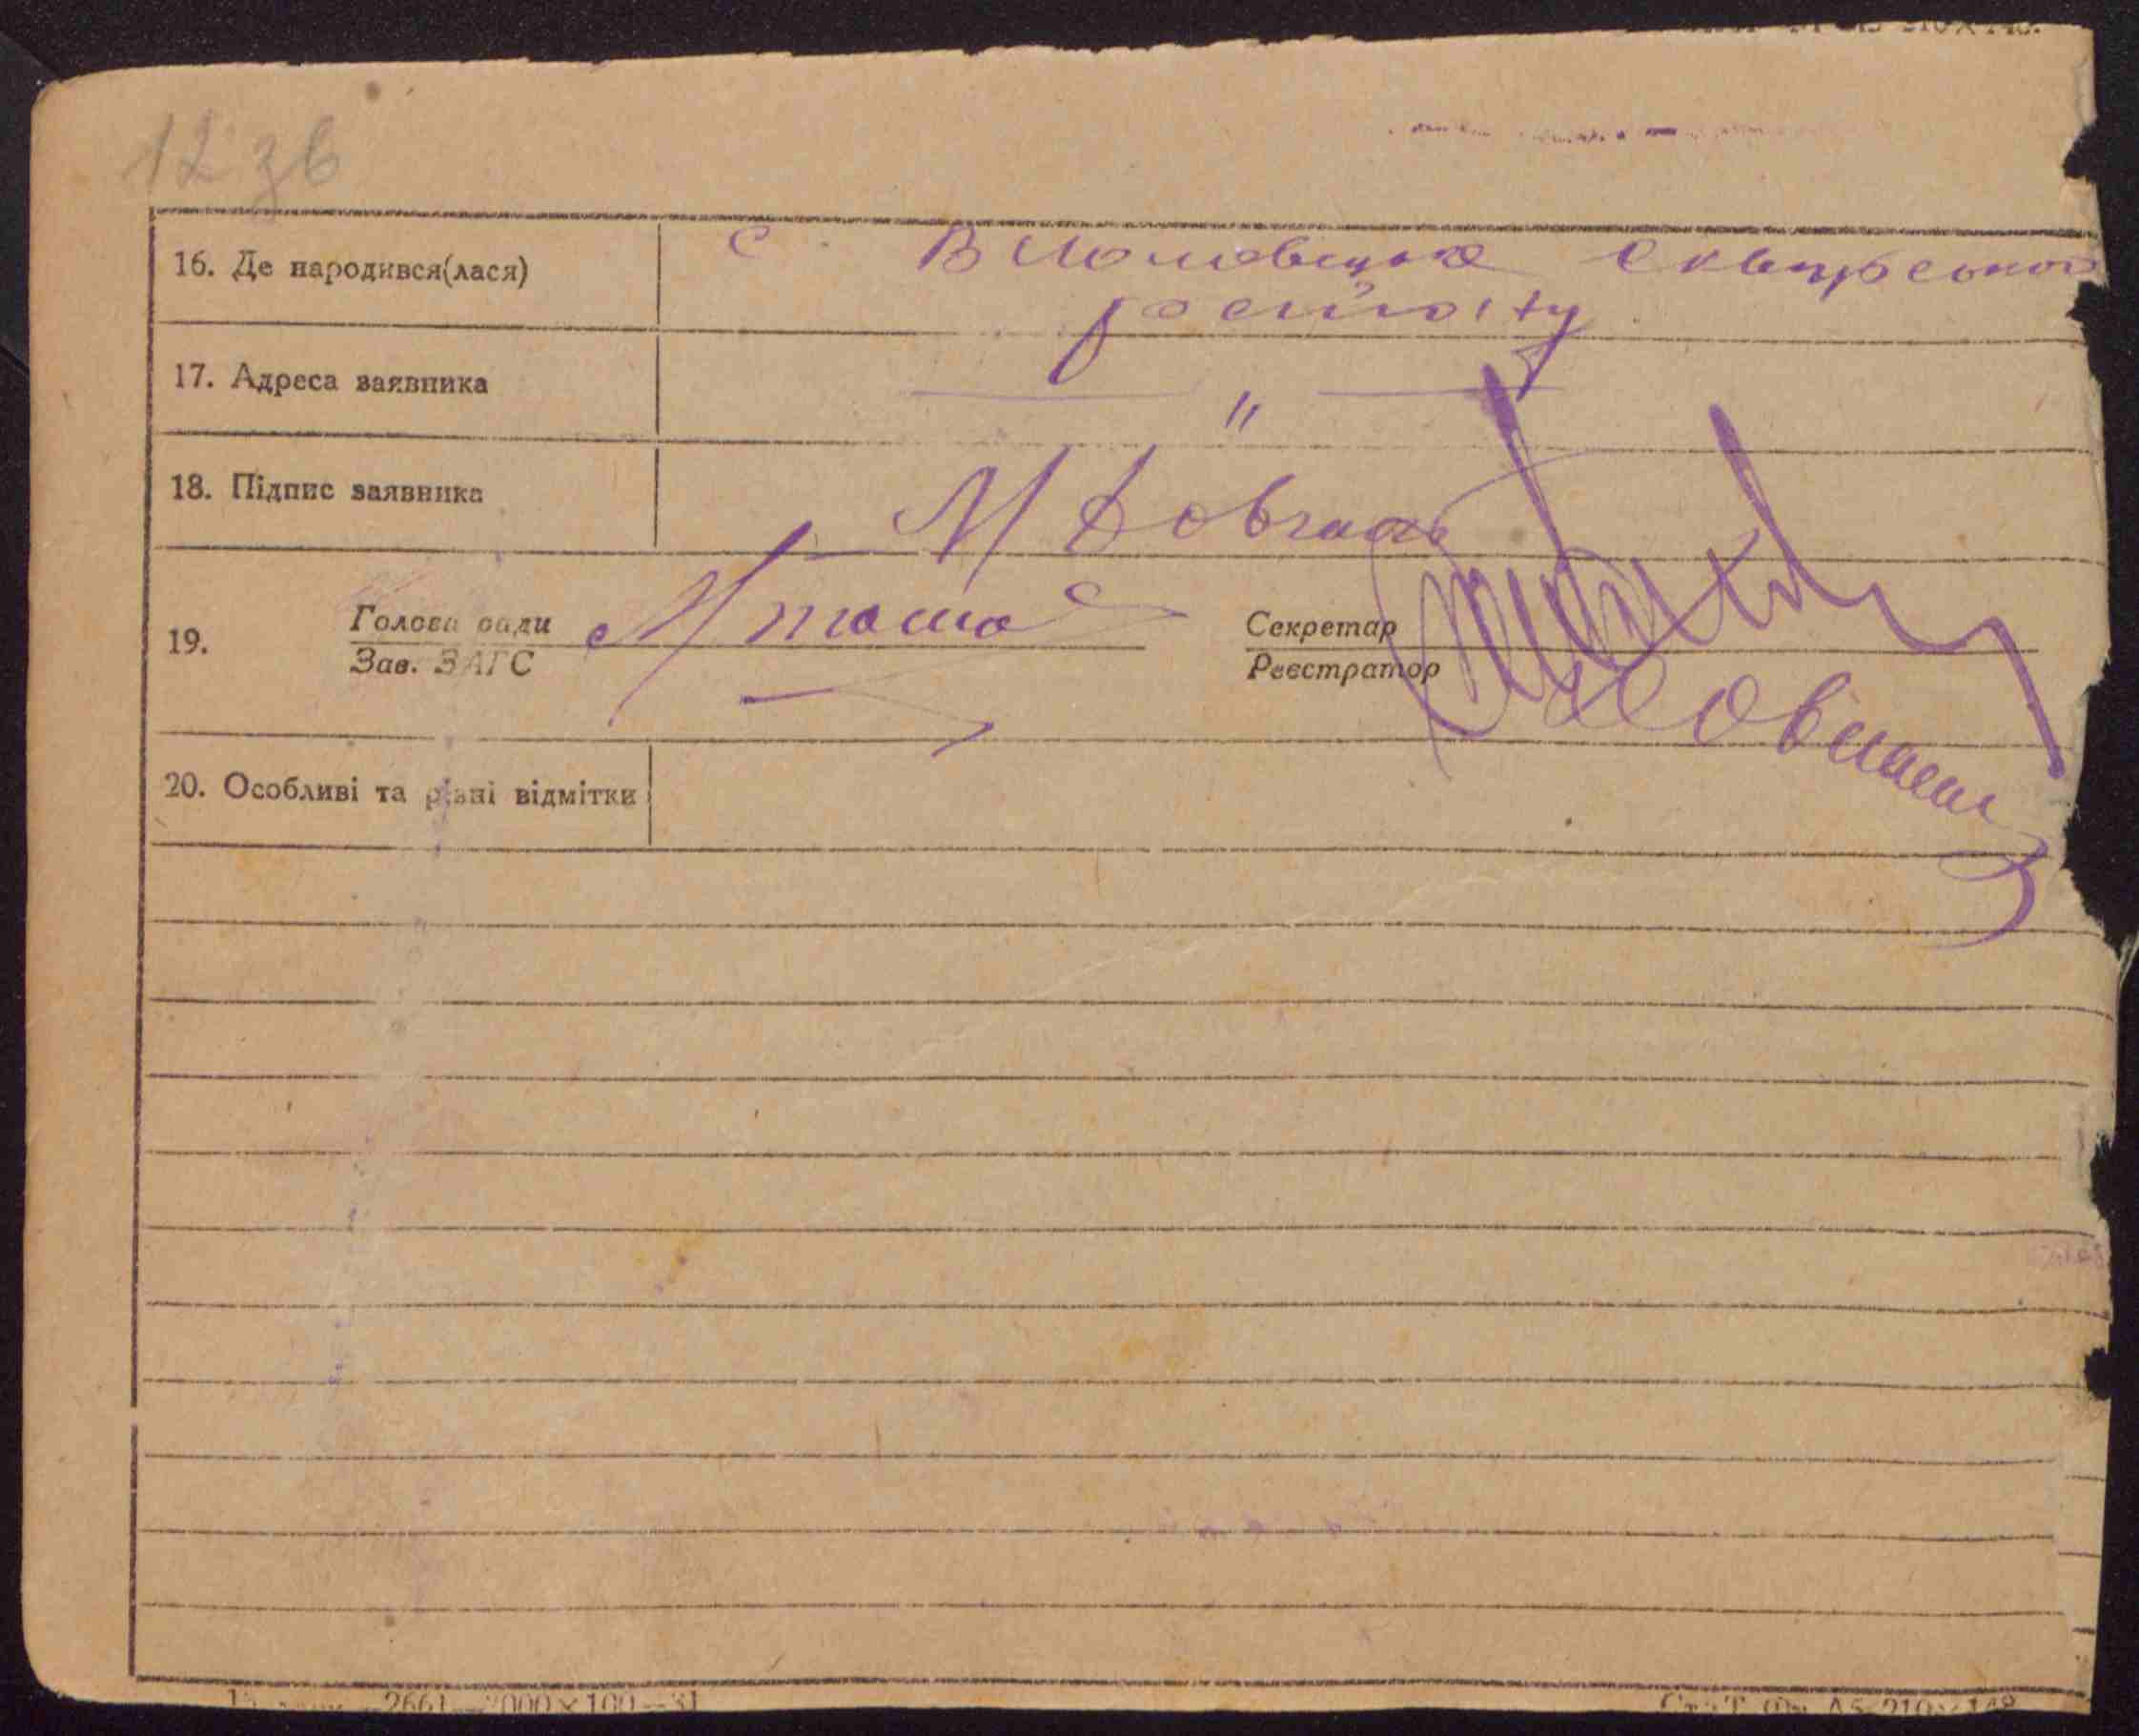 12 зв
16. Де народився(лася) с. В Половецьке Сквирського
району
17. Адреса заявника — " —
18. Підпис заявника М Довгаль
19. Голова ради Секретар
Зав. ЗАГС Реєстратор
20. Особливі та різні відмітки
2661 — 2000×100—31
А5-210×148